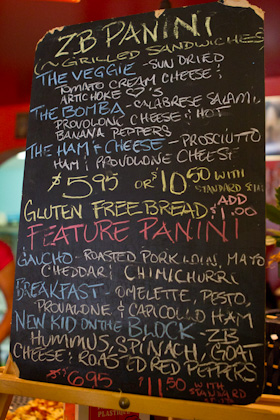 ZB PANINI
~ GRILLED SANDWICHES
THE VEGGIE - SUN DRIED
TOMATO CREAM CHEESE;
ARTICHOKE ♡'S
THE BOMBA - CALABRESE SALAMI,
PROVOLONE CHEESE & HOT
BANANA PEPPERS
THE HAM & CHEESE - PROSCIUTTO
HAM | PROVOLONE CHEESE
$5.95 OR $10.50 WITH
STANDARD
GLUTEN FREE BREAD: ADD
$1.00
FEATURE PANINI
GAUCHO - ROASTED PORK LOIN, MAYO
CHEDDAR & CHIMICHURRI
BREAKFAST - OMELETTE, PESTO,
PROVALONE & CAPICOLLO HAM
NEW KID ON THE BLOCK ZB
HUMMUS, SPINACH, GOAT
CHEESE; ROASTED RED PEPPERS
$6.95 $11.50 WITH
STANDARD